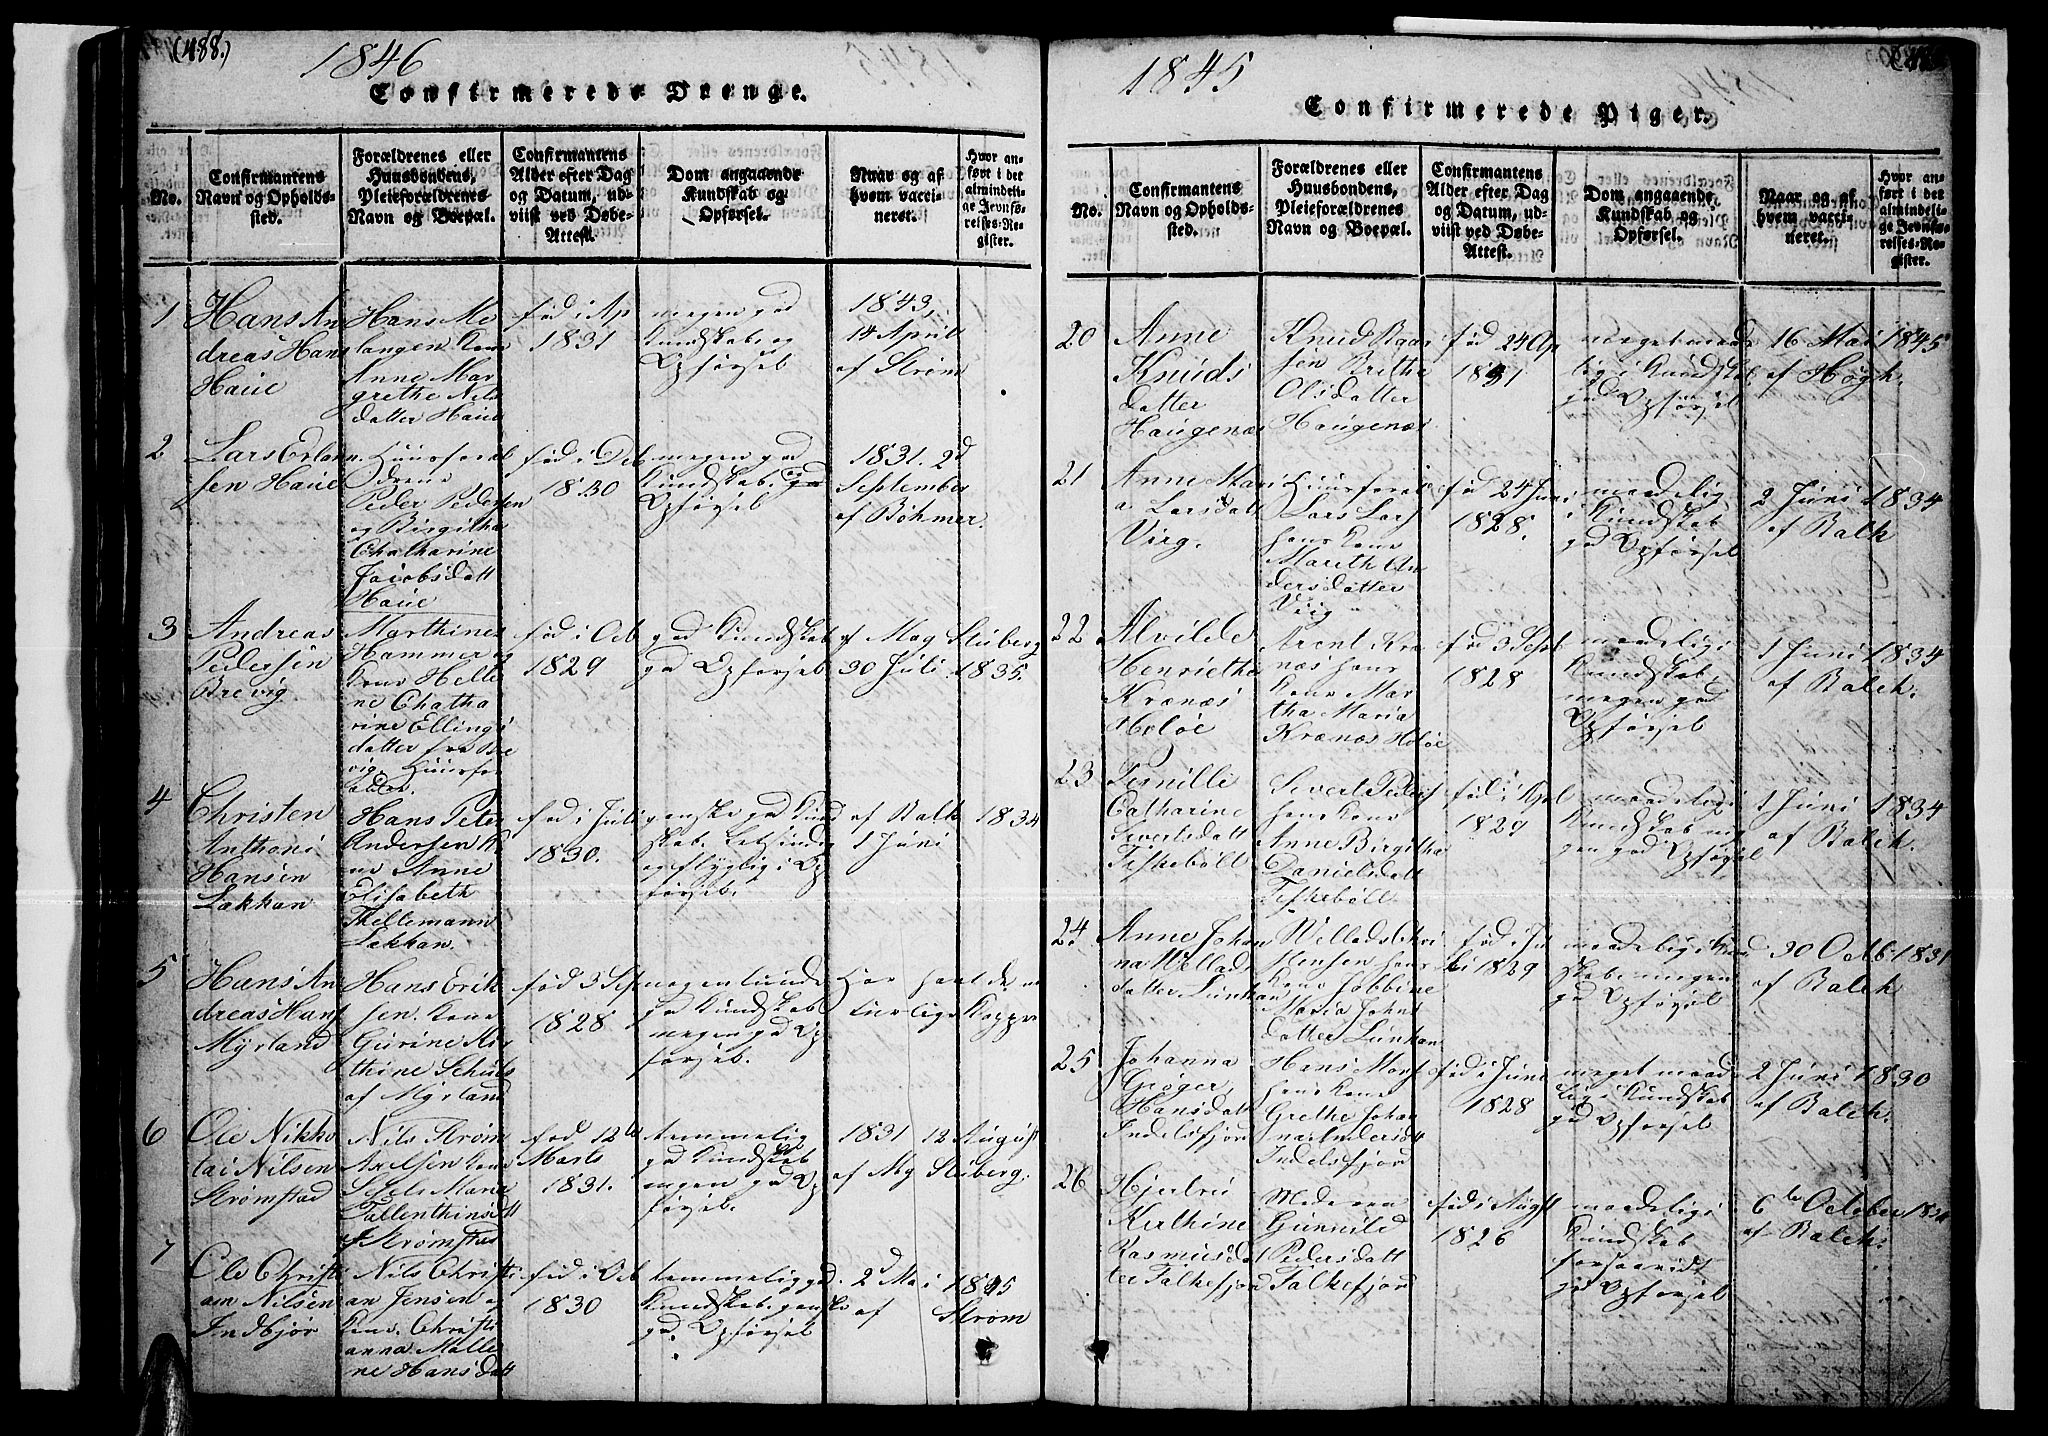 (488.)
1846
Confirmerede Drenge.
No.
Confirmantens
Navn og Opholds-
sted.
Forældrenes eller
Huusbondens,
Pleieforældrenes
Navn og Boepæl.
Confirmantens
Alder efter Dag
og Datum, ud-
viist ved Døbe-
Attest.
Dom angaaende
Kundskab og
Opførsel.
Naar og af
hvem vacci-
neret.
Hvor an-
ført i det
almindeli-
ge Jevnfø-
relses-Re-
gister.
1
Hans An
dreas Hans
Haue
Hans Me
langen Kone
Anne Mar
grethe Nils
datter Haue
fød i Ap
1831
megen god
Kundskab og
Opførsel
1843,
14 April
af Strøm
2
Lars Erlan
sen Haue
Huusforæl
drene
Peder Pedersen
og Birgitha
Chatharine
Jacobsdatt
Haue
fød i Dec
1830
megen god
Kundskab, god
Opførsel
1831. 2d
September
af Bøhmer.
3
Andreas
Pedersen
Brevig
Marthines
Hammer og
Kone Helle
ne Chatha
rine Ellings
datter fra Bre
vig Huusfor
fød i Oct
1829
god Kundskab
god Opførsel
af Mag Stuberg
30 Juli 1835.
4
Christen
Anthoni
Hansen
Lakhan
Hans Peter
Andersen K
one Anne
Elisabeth
Thellemann
Lakhan.
fød i Juli
1830.
ganske god Kund
skab. Letsindig
og flygtig i Op
førsel.
af Balk 1834
1 Juni
5
Hans An
dreas Hans
Myrland
Hans Erik
sen Kone
Gurine Mar
thine Schuls
af Myrland
fød 3 Sep
1828
nogenlunde
god Kundskab
megen god Op
førsel.
Har havt de na
turlige Kopper
6
Ole Nikko
lai Nilsen
Strømstad
Nils Strøm
Axelsen Kone
Maria
Tallenthinsdatt
af Strømstad
fød 12te
Marts
1831.
temmelig
god Kundskab
megen god Op
førsel.
1831 12 August
af Mg Stuberg.
7
Ole Christi
an Nilsen
Indhjør
Nils Christi
an Jensen og
Kone. Christi
anna Malle
ne Hansdatt
fød i Oct
1830
temmelig god
Kundskab, ganske
god. Opførsel
2d Mai 1845
af Strøm
1845
Confirmerede Piger.
No.
Confirmantens
Navn og Opholds-
sted.
Forældrenes eller
Huusbondens,
Pleieforældrenes
Navn og Boepæl.
Confirmantens
Alder efter Dag
og Datum, ud-
viist ved Døbe-
Attest.
Dom angaaende
Kundskab og
Opførsel.
Naar og af
hvem vacci-
neret.
Hvor an-
ført i det
almindeli-
ge Jevnfø-
relses-Re-
gister.
20
Anne
Knuds
datter
Haugenæs
Knud Baar
sen Brithe
Olsdatter
Haugenæs
fød 24 Ap
1831
meget maade
lig i Kundskab
god Opførsel
16 Mai 1845
af Høgh.
21
Anne Mari
a Larsdatt
Virg.
Huusforæl
Lars Lars
hans Kone
Marith An
dersdatter
Virg
fød 24 Juni
1828.
maadelig
i Kundskab
god Opførsel
2 Juni 1834
af Balk
22
Alvilde
Henriethe
Kranæs
Holøe
Arent Kra
næs hans
Kone Mar
tha Maria
Kranæs Holøe
fød 3 Sept
1828
maadelig i
Kundskab,
megen god
Opførsel
1 Juni 1834
af Balch.
23
Pernille
Catharine
Sivertsdatt
Fiskebøll
Sivert Peders
hans Kone
Anne Birgitha
Danielsdatt
Fiskebøll
fød i Apl
1829
maadelig i
Kundskab me
gen god Opførsel
1 Juni 1834
af Balch.
24
Anne Johan
na Wellads
datter Lunkan
Wellads Chri
stensen hans
Kone Jobbine
Maria Johns
datter Lunkan
fød i Ju
li 1829
maadelig i Kund
skab. megen
god Opførsel
30 Octb 1831
af Balch
25
Johanna
Giøger
Hansdatt
Indelsfjord
Hans Mons
hans Kone
Grethe Johan
na Andersdt
Indelsfjord
fød i Juni
1828
meget maade
lig i Kundskab
god Opførsel
2 Juni 1830
af Balch.
26
Kirthine
Rasmusdat
ter Falkefjord
Moderen
Gunnild
Pedersdatt
Falkefjord
fød i Augst
1826
maadelig i
Kundskab
forsaavidt
god Opførsel
6te October 1834
af Balch.